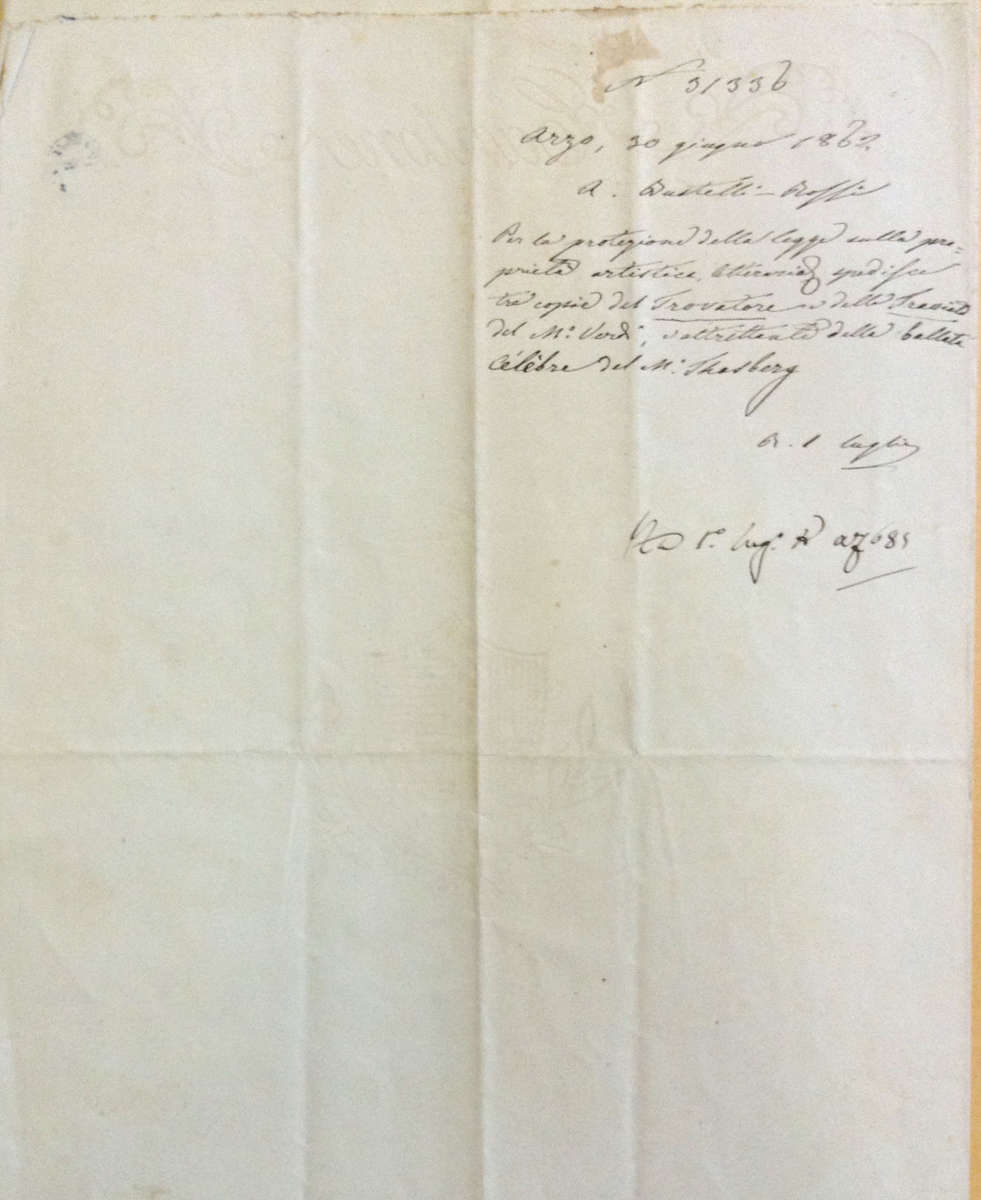 N 31336
Arzo, 30 giugno 1862.
A. Bustelli-Rossi
Per la protezione della legge sulla pro=
prietà artistica letteraria spedisce
tre copie del Trovatore e della Traviata
del M.o Verdi, e altrettante della ballata
Célèbre del M.o Thalberg
R. 1 luglio
1.o Lug.o